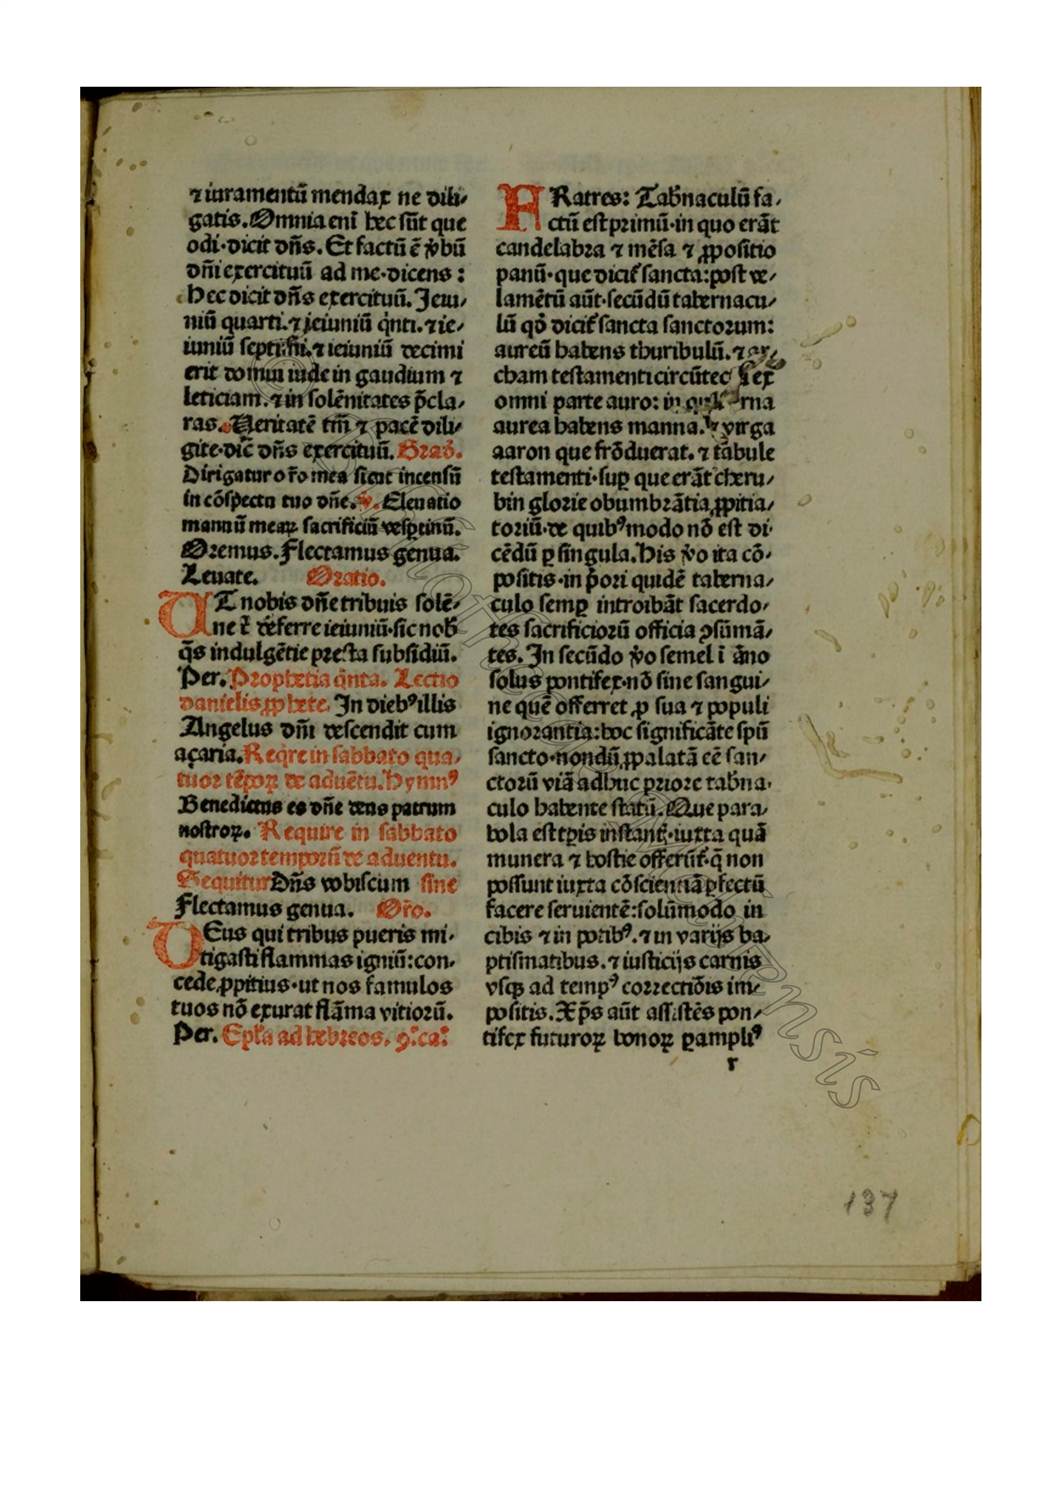 ⁊ iuramentū mendax ne dili⸗
gatis. Omnia enī hec sūt que
odi·dicit dn̄s. Et factū ē v̓bū
dn̄i exercituū ad me·dicens :
Hec dicit dn̄s exercituū. Jeiu⸗
niū quarti.⁊ jeiuniū q̇nti.⁊ ie⸗
iuniū septimi.⁊ ieiuniū decimi
erit domui iude in gaudium ⁊
leticiam.⁊ in solēnitates p̄cla⸗
ras. Veritatē tm̄ ⁊ pacē dili⸗
gite·dic̄ dn̄s exercituū. Grad̓.
Dirigatur or̄o mea sicut incensū
in cōspectu tuo dn̄e. ℣. Eleuatio
manuū meaꝝ sacrificiū vesp̱tinū.
Oremus. Flectamus genua.
Leuate. Oratio.
UT nobis dn̄e tribuis solē⸗
ne t̄ deferre ieiuniū·sic nob̄
q̄s indulgētie presta subsidiū.
Per. Prophetia q̇nta. Lectio
danielis ꝓphete. In diebꝰ illis
Angelus dn̄i descendit cum
açaria. Reqͥre in sabbato qua⸗
tuor tēpoꝝ de aduētu. Hymnꝰ
Benedictus es dn̄e deus patrum
nostroꝝ. Require in sabbato
quatuor temporū de aduentu.
Sequitur Dn̄s vobiscum sine
Flectamus genua. Or̄o.
DEus qui tribus pueris mi⸗
tigasti flammas igniū:con⸗
cede ꝓpitius·ut nos famulos
tuos nō exurat flāma vitiorū.
Per. Epl̄a ad hebreos. 9.ca.
FRatres: Tab̄naculū fa⸗
ctū est primū·in quo erāt
candelabra ⁊ mēsa ⁊ ꝓpositio
panū·que dicit̄ sancta:post ve⸗
lamētū aūt·secūdū tabernacu⸗
lū qd̓ dicit̄ sancta sanctorum:
aureū habens thuribulū.⁊ ar⸗
cham testamenti circūtec
omni parte auro: in rna
aurea habens manna.⁊ virga
aaron que frōduerat.⁊ tabule
testamenti·suꝑ que erāt cheru⸗
bin glorie obumbrātia ꝓpitia⸗
toriū·de quibꝰ modo nō est di⸗
cēdū ꝑ singula. His v̓o ita cō⸗
positis·in p̓ori quidē taberna⸗
culo semꝑ introibāt sacerdo⸗
tes sacrificiorū officia ꝯsūmā⸗
tes. In secūdo v̓o semel ī āno
solus pontifex·nō sine sangui⸗
ne quē offerret ꝓ sua ⁊ populi
ignorantia:hoc significāte spū
sancto·nondū ꝓpalatā eē san⸗
ctorū viā adhuc priore tab̄na⸗
culo habente statū. Que para⸗
bola est tp̱is instant̄·iuxta quā
munera ⁊ hostie offerūt̄·q̄ non
possunt iuxta cōscientiā ꝑfectū
facere seruientē:solūmodo in
cibis ⁊ in potibꝰ.⁊ in varijs ba⸗
ptismatibus.⁊ iusticijs carnis
vsqꝫ ad tempꝰ correctiōis im⸗
positis. Xp̄s aūt assistēs pon⸗
tifex futuroꝝ bonoꝝ ꝑampliꝰ
r
137